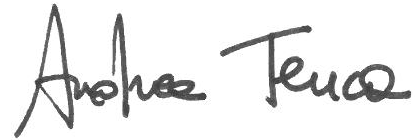 Andrea Tenca